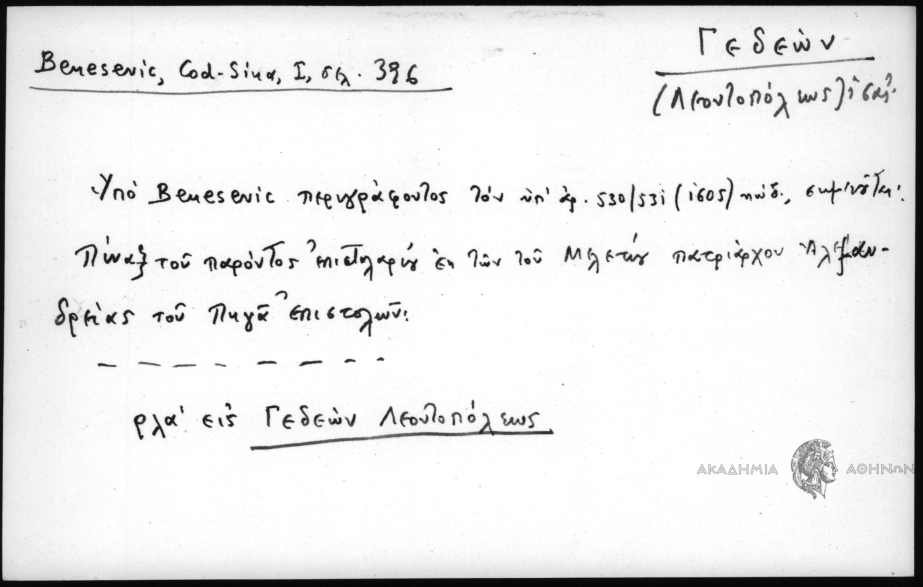 Γεδεὼν
Benesevic, Cod-Sina, I, σελ. 396
(Λεοντοπόλεως)
Ὑπὸ Benesevic περιγράφοντος τὸν ὑπ' ἀρ. 530/531 (1605) κώδ., σημειοῦται:
Πίναξ τοῦ παρόντος ἐπιστολαρίου ἐκ τῶν τοῦ Μελετίου πατριάρχου Ἀλεξαν-
δρείας τοῦ Πηγᾶ ἐπιστολῶν:
ρλα' εἰς Γεδεὼν Λεοντοπόλεως
ΑΚΑΔΗΜΙΑ ΑΘΗΝΩΝ